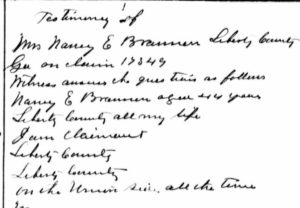 Testimony of
Mrs Nancy E Brannen Liberty County
Ga on claim 17349
Witness answers the questions as follows
Nancy E Brannen aged 44 years
Liberty County all my life
I am Claimant
Liberty County
Liberty County
on the Union side all the time